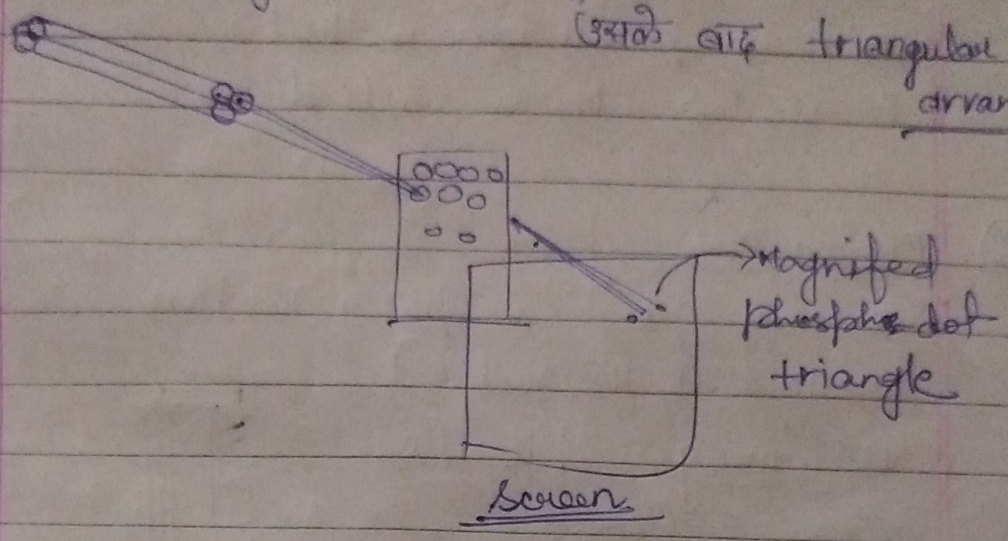 उसके बाद triangular
arra
Magnifed
phosphor dot
triangle
Screen